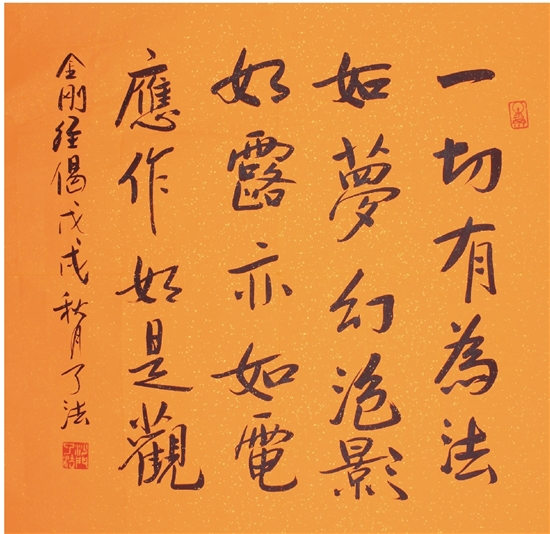 一切有為法
如夢幻泡影
如露亦如電
應作如是觀
金剛經偈戊戌秋月了法